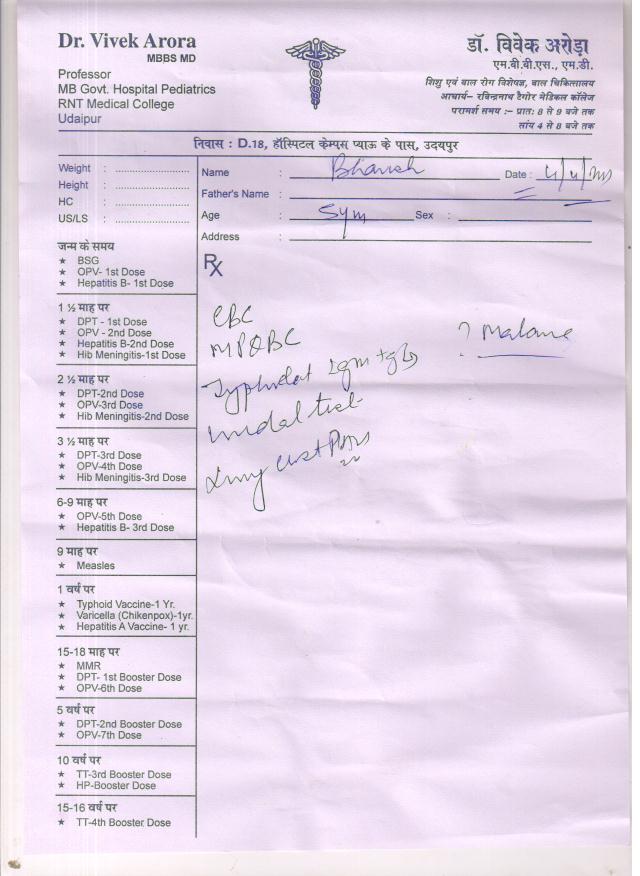 Dr. Vivek Arora
MBBS MD
Professor
MB Govt. Hospital Pediatrics
RNT Medical College
Udaipur
डॉ. विवेक अरोड़ा
एम.बी.बी.एस., एम.डी.
शिशु एवं बाल रोग विशेषज्ञ, बाल चिकित्सालय
आचार्य– रविन्द्रनाथ टैगोर मेडिकल कॉलेज
परामर्श समय :– प्रातः 8 से 9 बजे तक
सांय 4 से 8 बजे तक
निवास : D.18, हॉस्पिटल केम्पस प्याऊ के पास, उदयपुर
Weight :
Height :
HC :
US/LS :
Name : Date :
Father's Name :
Age : Sex :
Address :
Rx
जन्म के समय
★ BSG
★ OPV- 1st Dose
★ Hepatitis B- 1st Dose
1 ½ माह पर
★ DPT - 1st Dose
★ OPV - 2nd Dose
★ Hepatitis B-2nd Dose
★ Hib Meningitis-1st Dose
2 ½ माह पर
★ DPT-2nd Dose
★ OPV-3rd Dose
★ Hib Meningitis-2nd Dose
3 ½ माह पर
★ DPT-3rd Dose
★ OPV-4th Dose
★ Hib Meningitis-3rd Dose
6-9 माह पर
★ OPV-5th Dose
★ Hepatitis B- 3rd Dose
9 माह पर
★ Measles
1 वर्ष पर
★ Typhoid Vaccine-1 Yr.
★ Varicella (Chikenpox)-1yr.
★ Hepatitis A Vaccine- 1 yr.
15-18 माह पर
★ MMR
★ DPT- 1st Booster Dose
★ OPV-6th Dose
5 वर्ष पर
★ DPT-2nd Booster Dose
★ OPV-7th Dose
10 वर्ष पर
★ TT-3rd Booster Dose
★ HP-Booster Dose
15-16 वर्ष पर
★ TT-4th Booster Dose
CBC